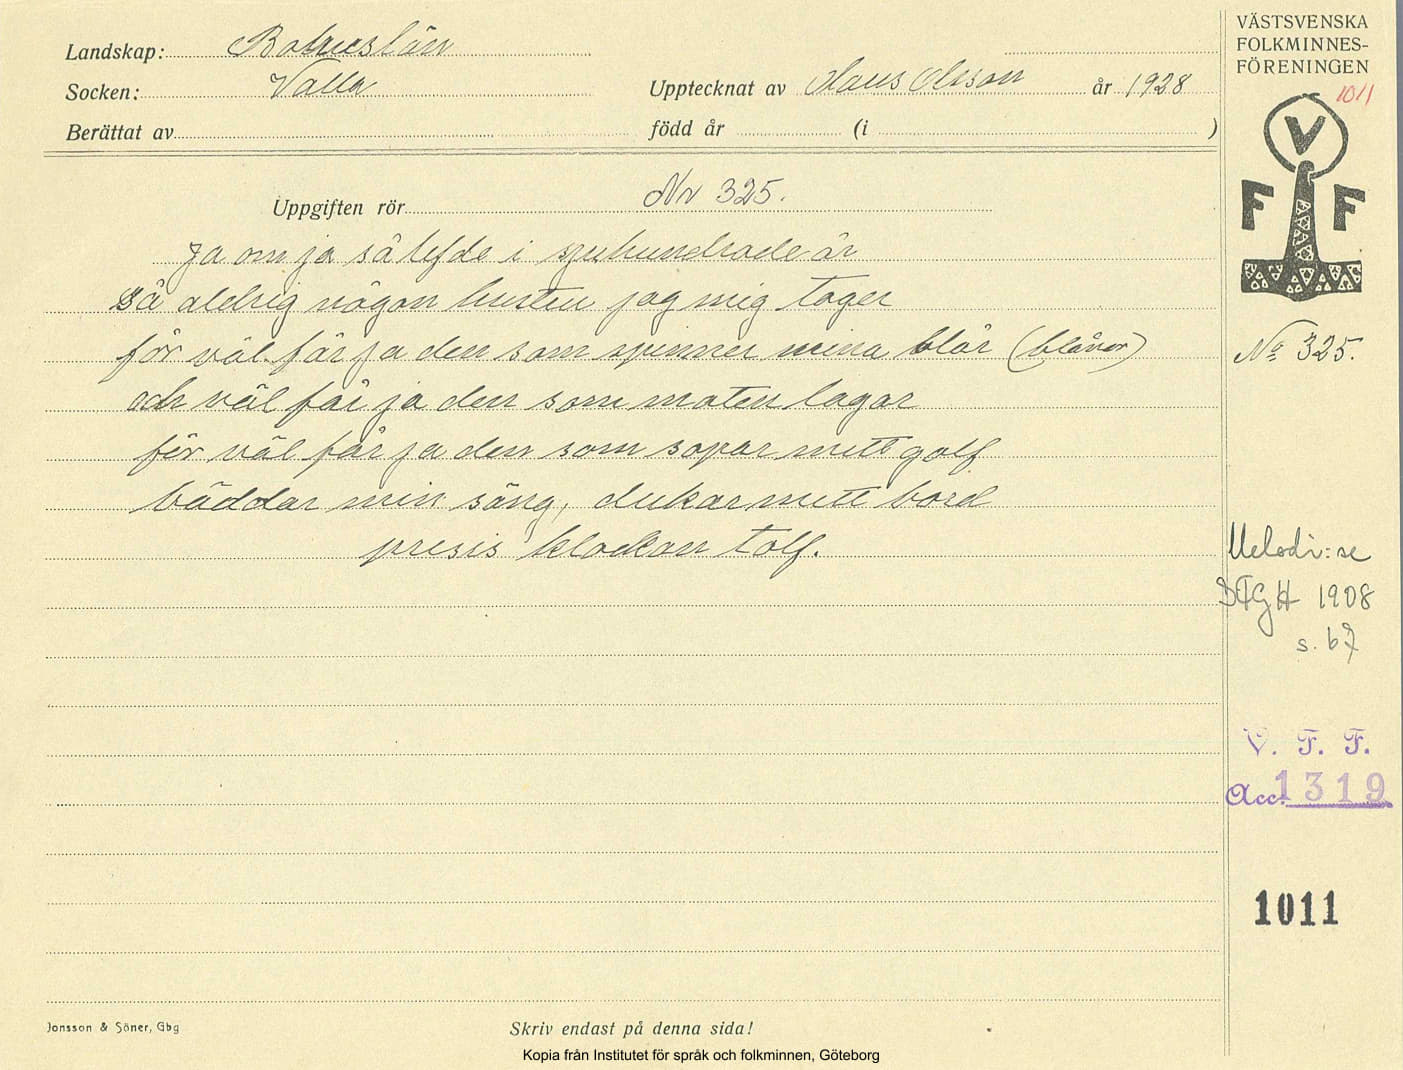 Landskap: Bohuslän
Socken: Valla
Upptecknat av Hans Olsson år 1928
Berättat av
född år (i )
VÄSTSVENSKA
FOLKMINNES-
FÖRENINGEN
1011
V
F F
Uppgiften rör Nr 325.
Ja om ja så lefde i sjuhundrade år
så aldrig någon hustru jag mig tager
för väl får ja den som spinner mina blår (blånor)
och väl får ja den som maten lagar
för väl får ja den som sopar mitt golf
bäddar min säng, dukar mitt bord
presis klockan tolf.
No 325.
Melodi: se
BFGH 1908
s. 67
V. F. F.
Acc. 1319
1011
Jonsson & Söner, Gbg
Skriv endast på denna sida!
Kopia från Institutet för språk och folkminnen, Göteborg